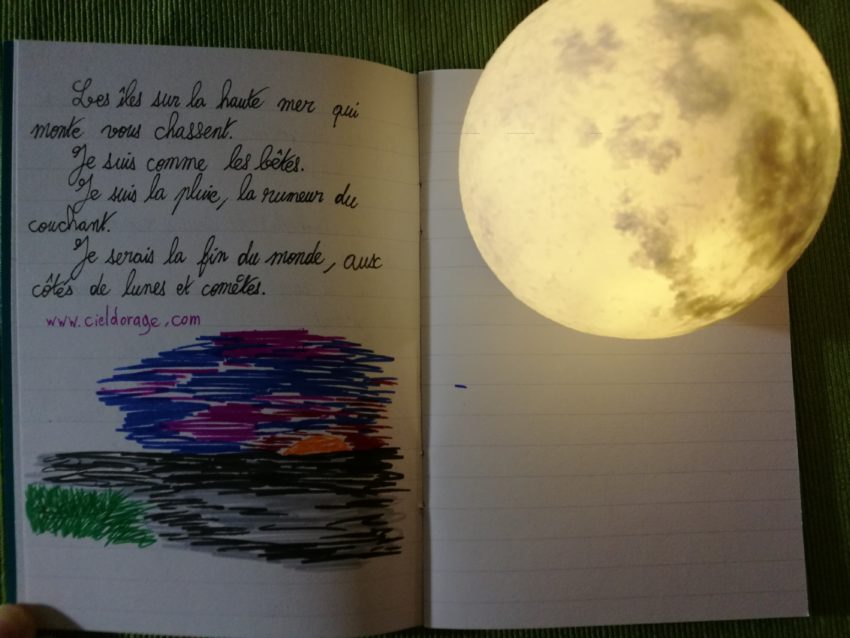 Les îles sur la haute mer qui
monte vous chassent.
Je suis comme les bêtes.
Je suis la pluie, la rumeur du
couchant.
Je serais la fin du monde, aux
côtés de lunes et comètes.
www.cieldorage.com